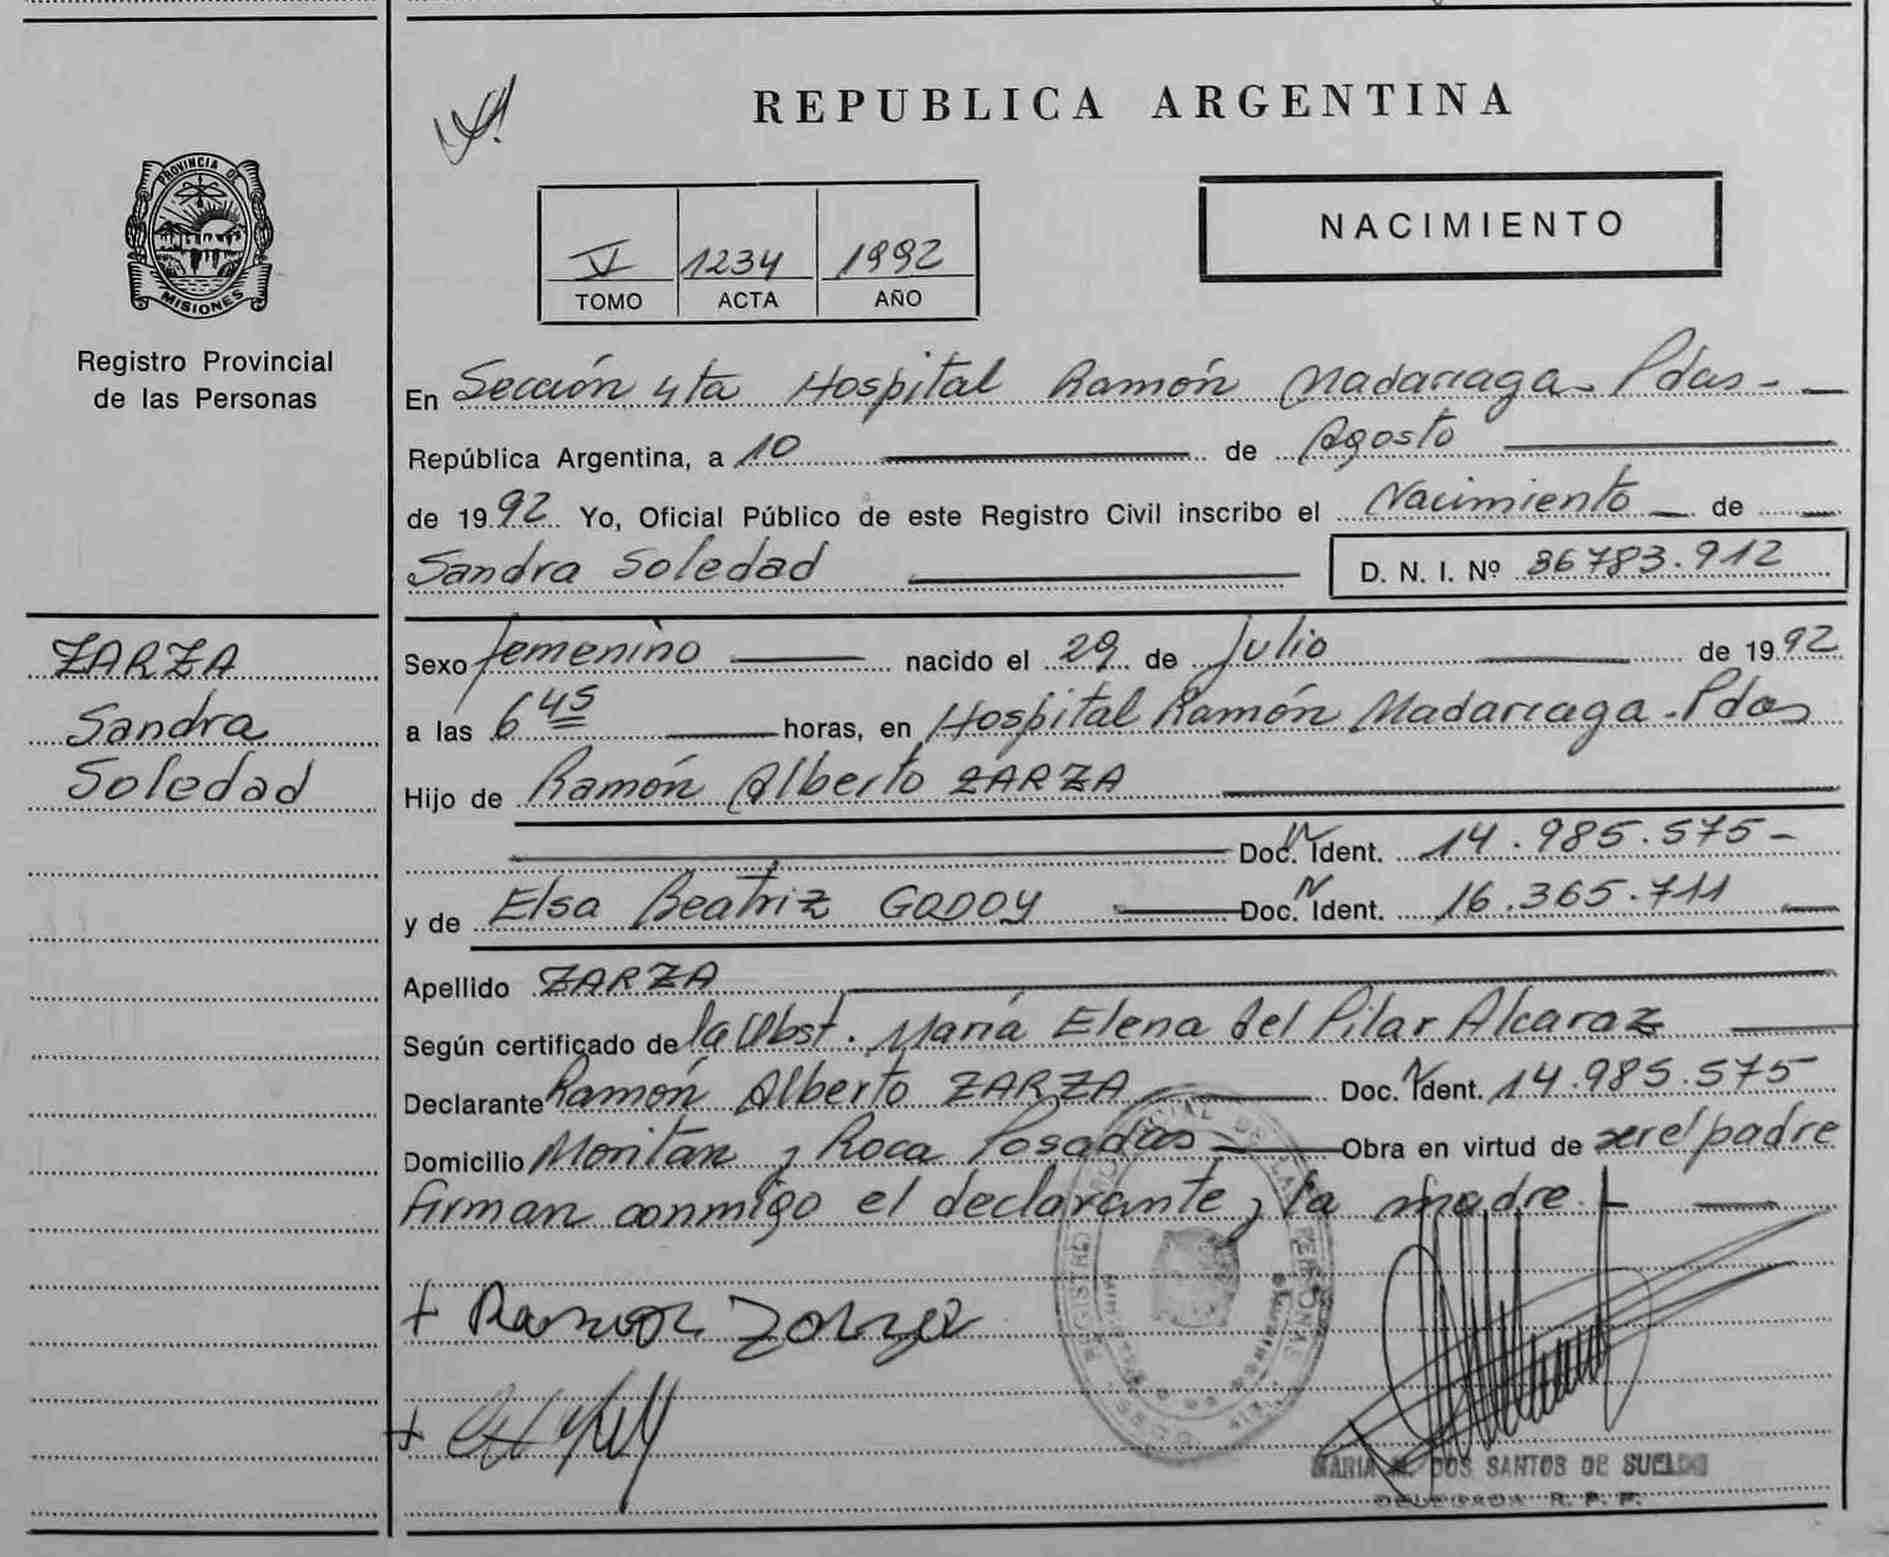 REPUBLICA ARGENTINA
PROVINCIA DE
MISIONES
Registro Provincial
de las Personas
V 1234 1992
TOMO ACTA AÑO
NACIMIENTO
En Sección 4ta Hospital Ramón Madariaga - Pdas -
República Argentina, a 10 de Agosto
de 1992 Yo, Oficial Público de este Registro Civil inscribo el Nacimiento de
Sandra Soledad D. N. I. Nº 36783.912
ZARZA
Sandra
Soledad
Sexo femenino nacido el 29 de Julio de 1992
a las 6 45 horas, en Hospital Ramón Madariaga - Pdas
Hijo de Ramón Alberto ZARZA
Doc. Ident. 14.985.575-
y de Elsa Beatriz GODOY Doc. Ident. 16.365.711
Apellido ZARZA
Según certificado de la Obst. María Elena del Pilar Alcaraz
Declarante Ramón Alberto ZARZA Doc. Ident. 14.985.575
Domicilio Moritan y Roca Posadas Obra en virtud de ser el padre
firman conmigo el declarante y la madre.
Ramon Zarza
MARIA DOS SANTOS DE SUELDO
DELEGADA R. P. P.